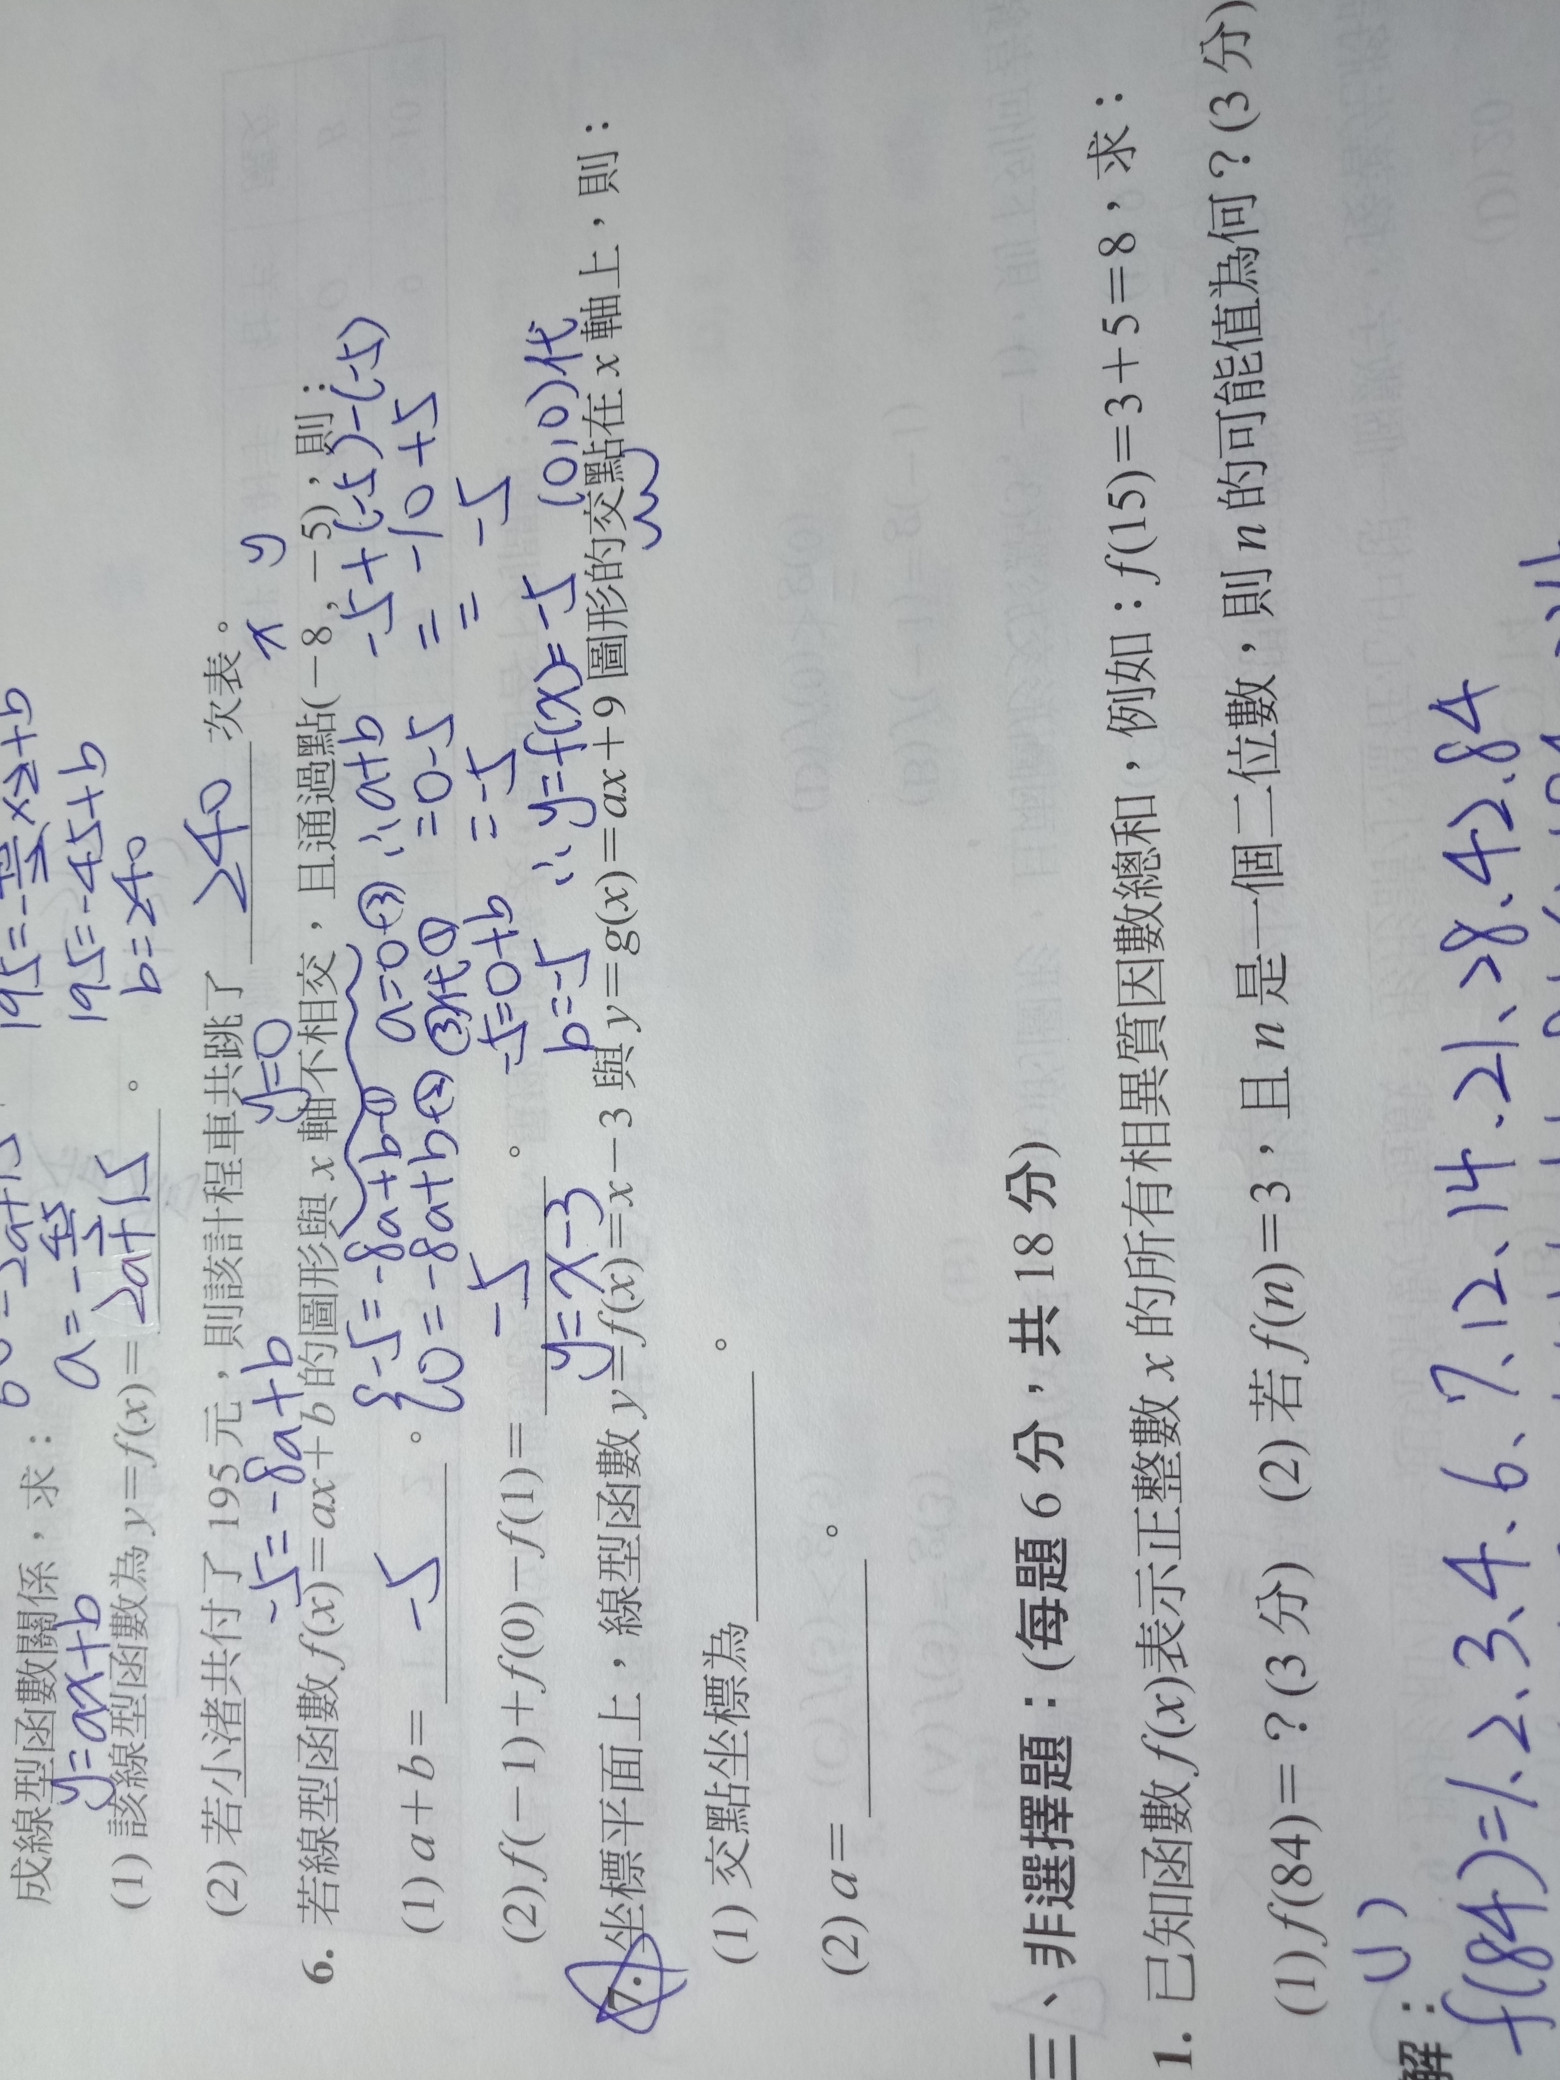 195=-45/2×2+b
195=-45+b
b=240
成線型函數關係，求：
y=ax+b
a=-45/2
(1) 該線型函數為 y=f(x)= 2a+15 。
(2) 若小渚共付了 195 元，則該計程車共跳了 240 次表。
-5=-8a+b
y=0
x y
6. 若線型函數 f(x)=ax+b 的圖形與 x 軸不相交，且通過點(-8，-5)，則：
{-5=-8a+b-① a=0-③ ∴a+b -5+(-5)-(-5)
0=-8a+b-② ③代① =0-5 =-10+5
(1) a+b= -5 。
-5=0+b =-5 =-5
(2) f(-1)+f(0)-f(1)= -5 。
b=-5 ∴y=f(x)=-5 (0,0)代
y=x-3
7. 坐標平面上，線型函數 y=f(x)=x-3 與 y=g(x)=ax+9 圖形的交點在 x 軸上，則：
(1) 交點坐標為 。
(2) a= 。
三、非選擇題：(每題 6 分，共 18 分)
1. 已知函數 f(x)表示正整數 x 的所有相異質因數總和，例如：f(15)=3+5=8，求：
(1) f(84)=？(3 分) (2) 若 f(n)=3，且 n 是一個二位數，則 n 的可能值為何？(3 分)
解：(1)
f(84)=1、2、3、4、6、7、12、14、21、28、42、84